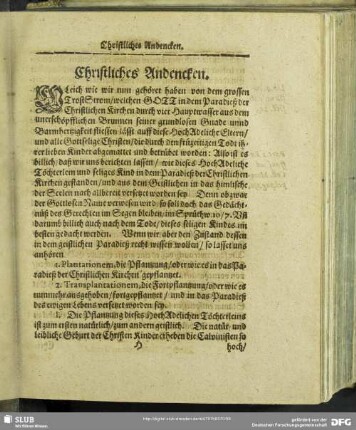 Christliches Andencken.
Christliches Andencken.
Gleich wie wir nun gehöret haben von dem grossen
Trost Strom / welchen GOTT in dem Paradieß der
Christlichen Kirchen durch vier Hauptwasser aus dem
unerschöpfflichen Brunnen seiner grundlosen Gnade unnd
Barmhertzigkeit fliessen lässt auff diese HochAdeliche Eltern /
und alle Gottselige Christen / die durch den frühzeitigen Todt ih-
rer lieben Kinder abgemattet und betrübet worden: Also ist es
billich / daß wir uns berichten lassen / wie dieses HochAdeliche
Töchterlein und seliges Kind in dem Paradieß der Christlichen
Kirchen gestanden / und aus dem Geistlichen in das himlische,
der Seelen nach allbereit versetzet worden sey. Denn ob zwar
der Gottlosen Name verwesen wird / so soll noch das Gedächt-
nüß des Gerechten im Segen bleiben / im Sprüchw. 10 / 7. Uñ
darumb billich auch nach dem Tode / dieses seligen Kindes im
besten gedacht werden. Wenn wir aber den Zustand dessen
in dem geistlichen Paradieß recht wissen wollen / so lasset uns
anhören
1. Plantationem, die Pflantzung / oder wie es in das Pa-
radieß der Christlichen Kirchen gepflantzet.
2. Transplantationem, die Fortpflantzung / oder wie es
nunmehr ausgehoben / fortgepflantzet / und in das Paradieß
des ewigen Lebens versetzet worden sey.
I. Die Pflantzung dieses HochAdelichen Töchterleins
ist zum ersten natürlich / zum andern geistlich. Die natür- und
leibliche Geburt der Christen Kinder erheben die Calvinisten so
H hoch /
SLUB
Wir führen Wissen.
http://digital.slub-dresden.de/
gefördert von der
Deutschen Forschungsgemeinschaft
DFG